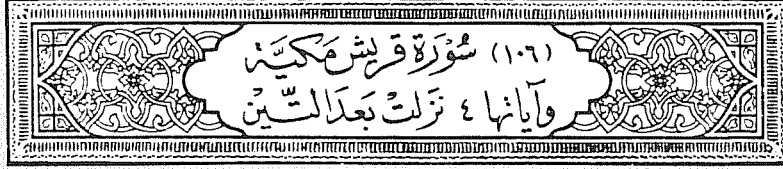 (١٠٦) سُوْرَةُ قُرَيْشٍ مَكِيَّةٌ
وَآيَاتُهَا ٤ نَزَلَتْ بَعْدَ التِّينِ